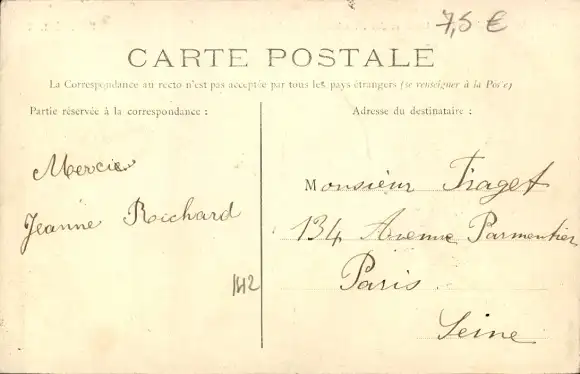 7,5 €
CARTE POSTALE
La Correspondance au recto n'est pas acceptée par tous les pays étrangers (se renseigner à la Poste)
Partie réservée à la correspondance :
Mercie
Jeanne Richard
142
Adresse du destinataire :
Monsieur Fraget
134 Avenue Parmentier
Paris
Seine